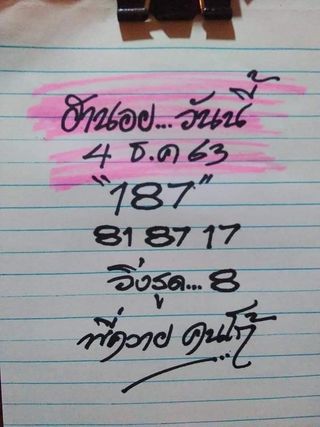 ฮานอย... วันนี้
4 ธ.ค 63
"187"
81 87 17
วิ่งรูด... 8
พี่ควาย คนโก้